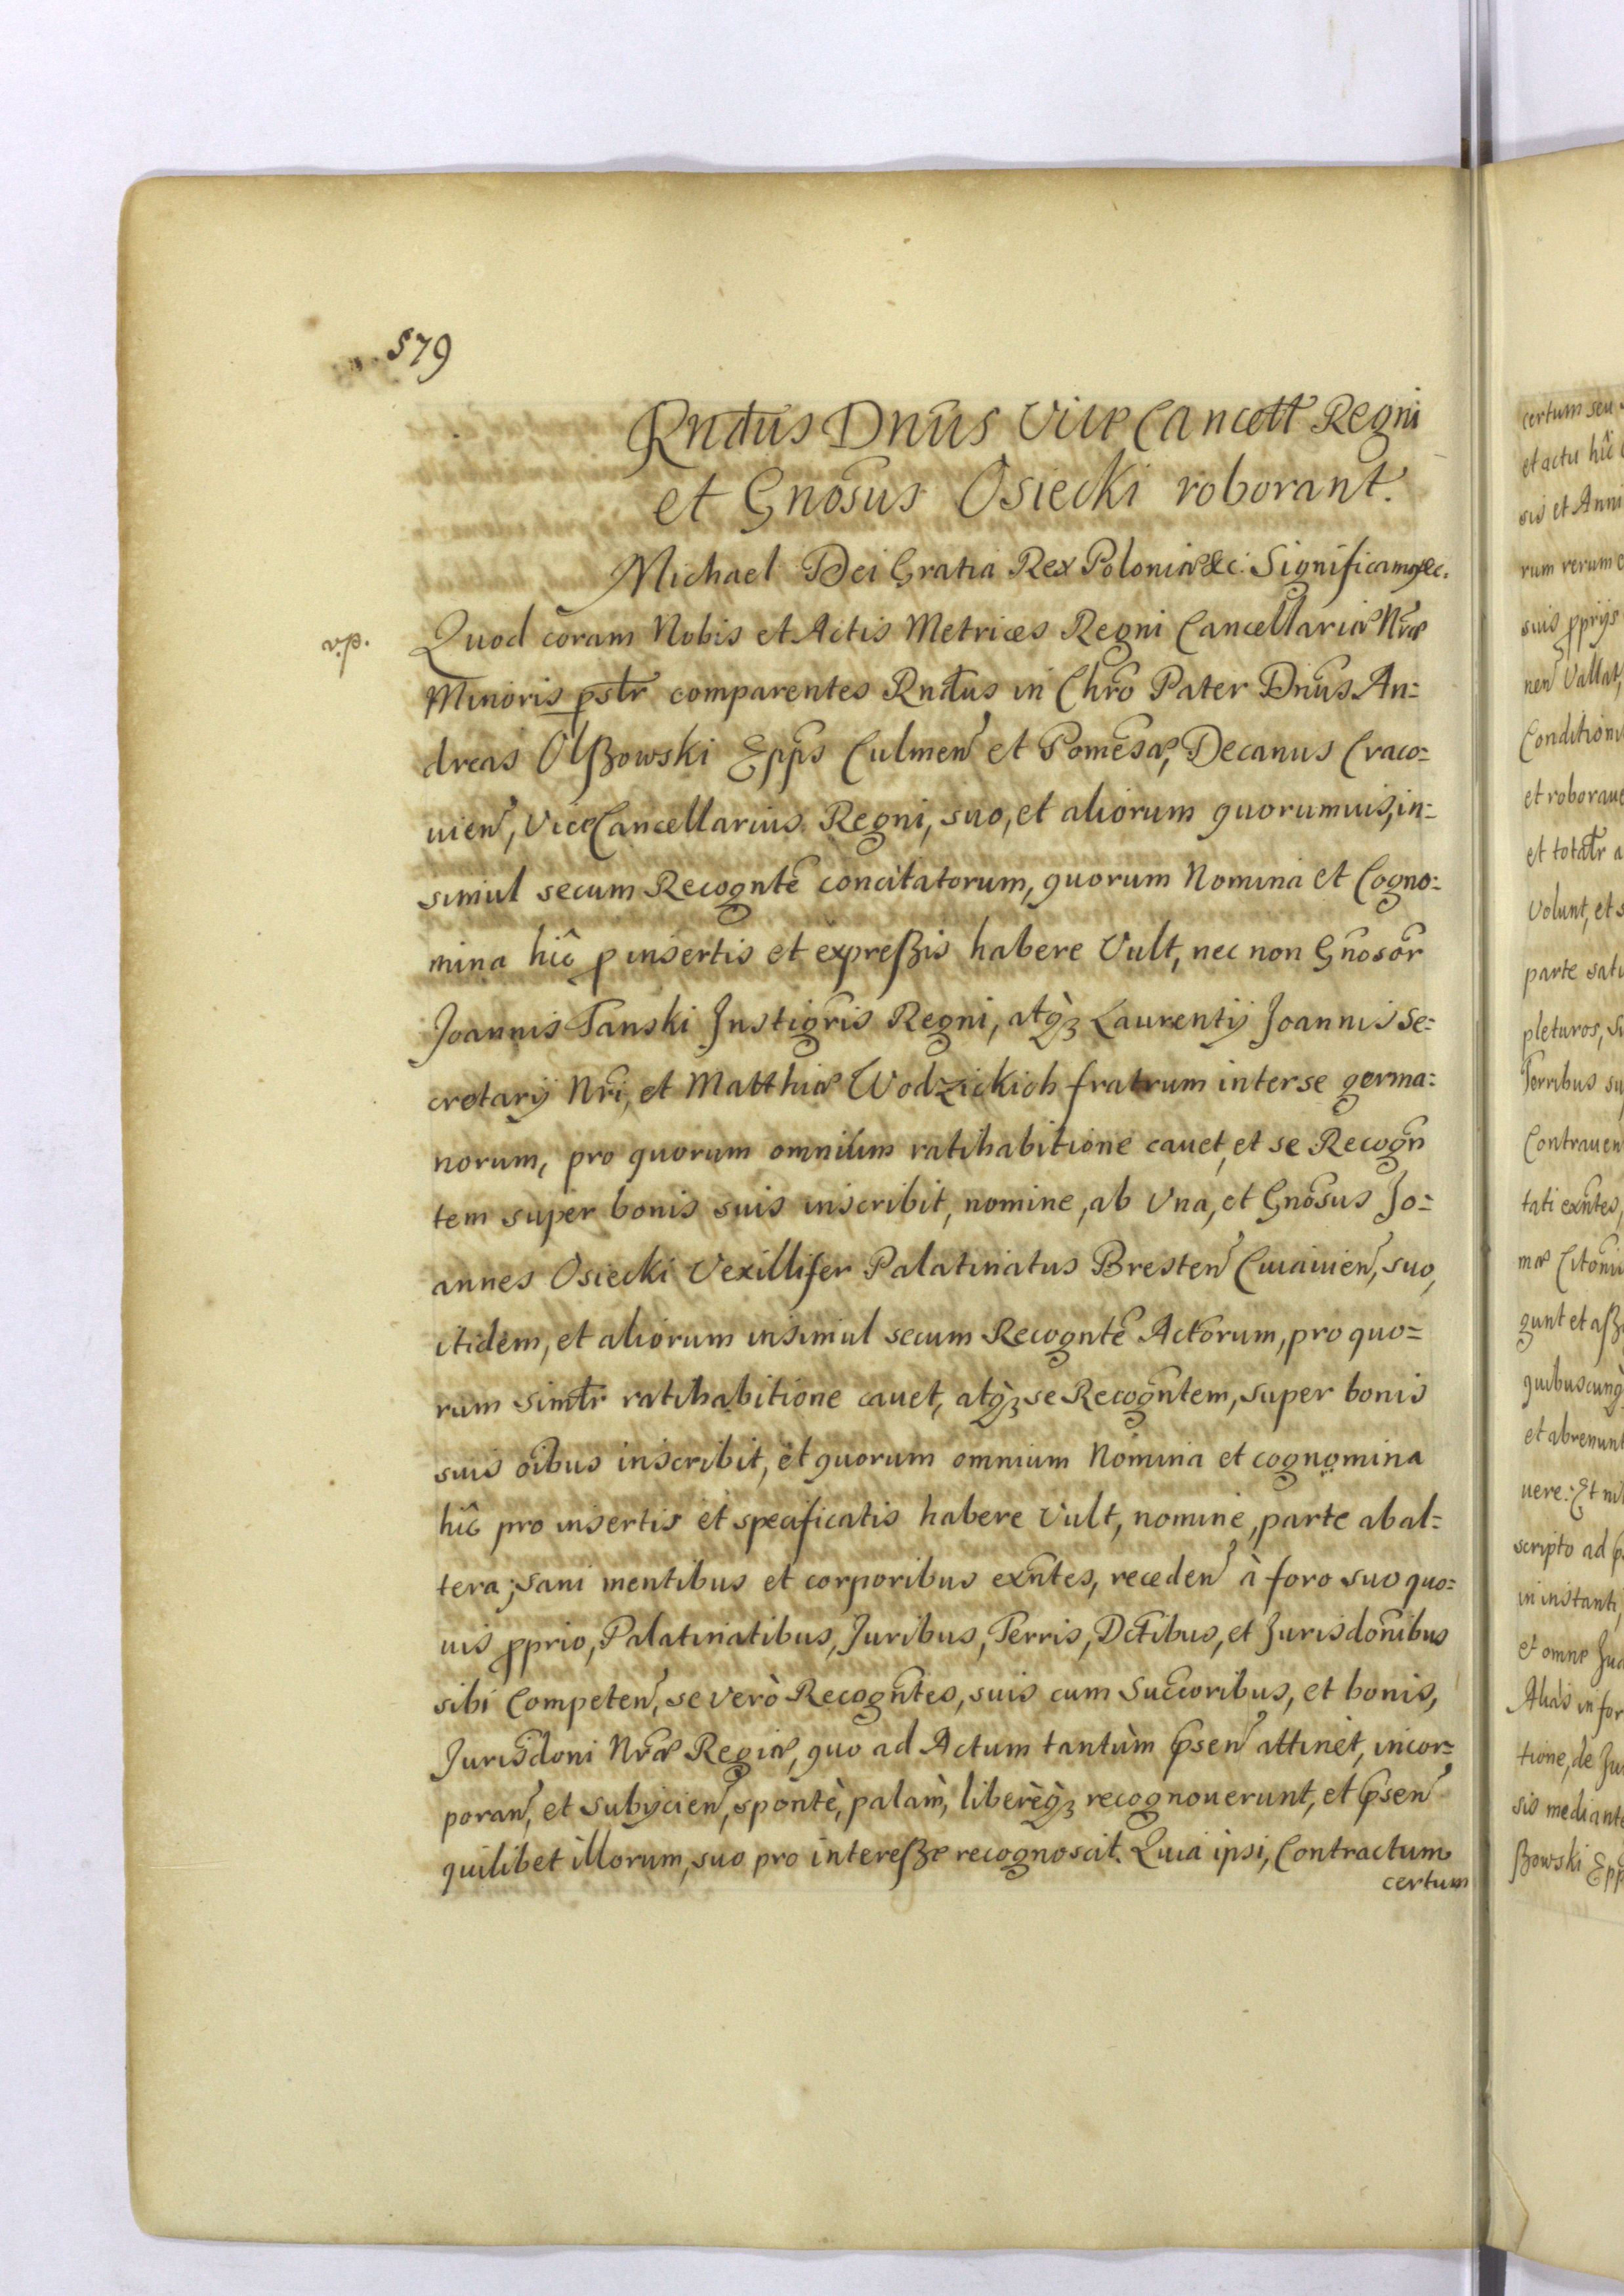 579
Rndus Dnus Vice Cancell Regni
et Gnosus Osiecki roborant.
Michael Dei Gratia Rex Poloniæ &c: Significamq &c.
v.p.
Quod coram Nobis et Actis Metrices Regni Cancellariæ Nræ
Minoris pstr comparentes Rndus in Chro Pater Dnus An:
dreas Olßowski Epps Culmen et Pomesa, Decanus Craco:
uien, ViceCancellarius Regni, suo, et aliorum quorumuis, in:
simul secum Recognte concitatorum, quorum Nomina et Cogno:
mina hîc p insertis et expreßis habere Vult, nec non Gnosor
Joannis Tanski Instigris Regni, atq3 Laurentij Joannis Se:
cretarij Nri, et Matthiæ Wodzickich fratrum inter se germa:
norum, pro quorum omnium ratihabitione cauet, et se Recogn
tem super bonis suis inscribit, nomine, ab Vna, et Gnosus Jo:
annes Osiecki Vexillifer Palatinatus Bresten Cuiauien, suo,
itidem, et aliorum insimul secum Recognte Actorum, pro quo:
rum Simlr ratihabitione cauet, atq3 se Recogntem, super bonis
suis oibus inscribit, et quorum omnium Nomina et cognomina
hîc pro insertis et specificatis habere Vult, nomine, parte ab al:
tera; Sani mentibus et corporibus exntes, receden à foro suo quo:
uis pprio, Palatinatibus, Juribus, Terris, Dctibus, et Jurisdonibus
sibi Competen, se verò Recogntes, suis cum Succoribus, et bonis,
Jurisdoni Nræ Regiæ, quo ad Actum tantùm psen attinet, incor:
poran, et Subijcien, spontè, palàm, liberèq3 recognouerunt, et psen
quilibet illorum, suo pro intereße recognoscit. Quia ipsi, Contractum
certum
certum seu
et actu hîc
sis et Anni
rum rerum
suis pprijs
nen Vallat,
Conditioni
et roboraue
et totalr a
Volunt, et s
parte sati
pleturos, su
Terribus su
Contrauen
tati exntes,
mæ Citoni
gunt et aß
quibuscunq
et abrenunt
uere: Et nil
scripto ad p
in instanti
et omne Jud
Alias in for
tione, de Jur
sis mediante
ßowski Epp